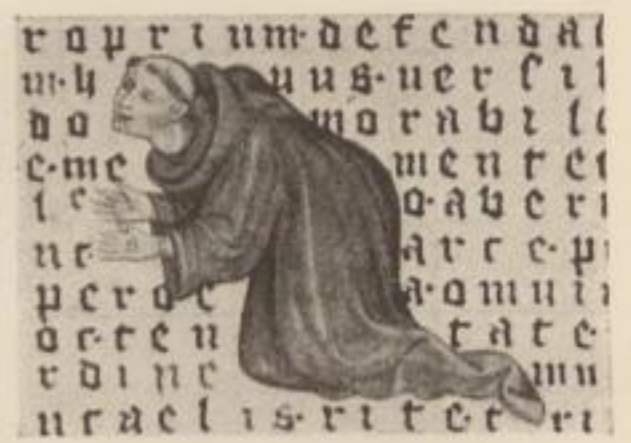 roprium·defenda
m·h uus·uersil
do morabil
e·me mente
o·aber
arce·p
perde a·omni
ten tate·
rdine mu
aelis·rite·t ri